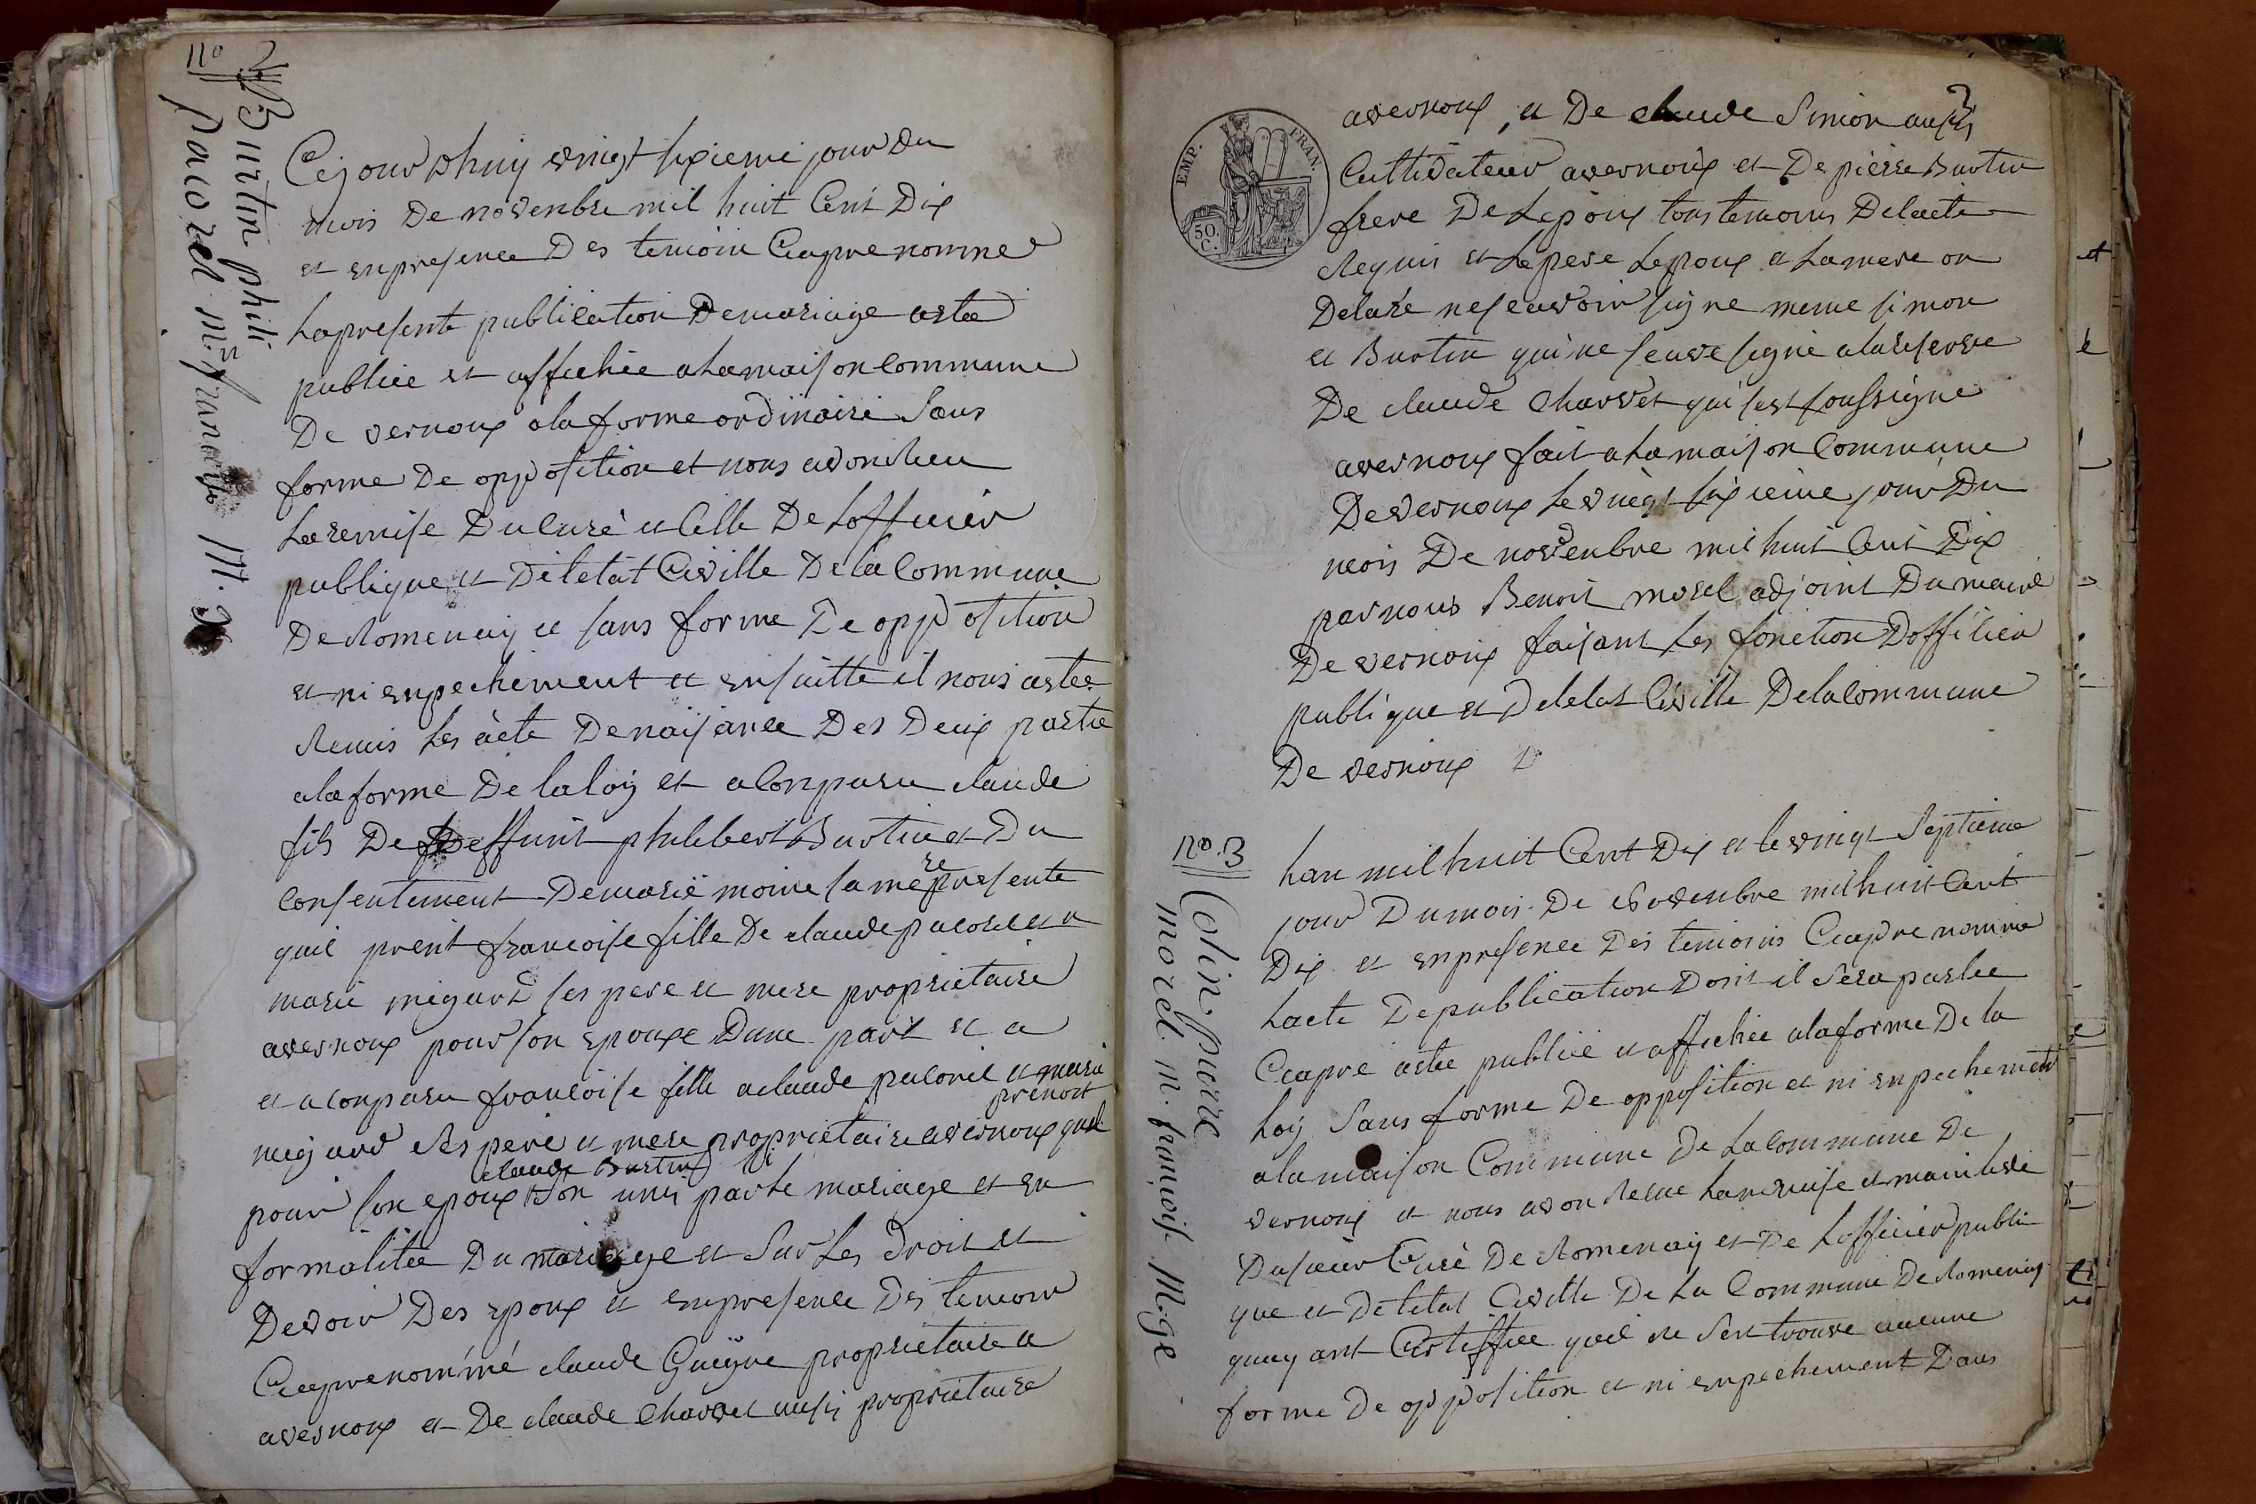 no 2
Burtin phili
pacoret m. francoise M.ge
Cejourdhuy vingt sixieme jour du
mois De novenbre mil huit Cent Dix
et enpresence Des temoin Ciapre nomme
Lapresente publication Demariage aeste
publiee et affichee alamaison Commune
De vernoux alaforme ordinaire Sans
forme De opposition et nous avons heu
La remise Du Curé et Celle De Lofficier
publique et De letat Civille De la Commune
De Romenay et sans forme De opposition
et ni enpechement et ensuitte il nous aeste
Remis Les acte Denaisance Des Deux partie
alaforme De laloy et aConparu claude
fils De Deffunt philibert Burtin et Du
Consentement Demarie moine sa mere presente
quil prent francoise fille De claude pacoret et a
marie migard ses pere et mere proprietaire
avernoux pour son epouxe Dune part et a
et aconparu francoise fille aclaude pacoret et marie
migard ses pere et mere proprietaire avernoux quel prenoit
claude Burtin
pour son epoux son unis parle mariage et en
formalitee Du mariage et Sur Les Droit et
Devoir Des epoux et enpresence Des temoin
Ciaprenommé claude Guigue proprietaire a
avernoux et De claude Charvet ausi proprietaire
3
EMP. FRAN.
50. C.
avernoux, et De claude Simon ausi
Cultivateur avernoux et De pierre Burtin
frere De Lepoux tous temoins Delacte
Requis et Lepere Lepoux et Lamere on
Delaré nesavoir signe meme simon
et Burtin qui ne save signe alareserve
De claude Charvet qui sest soussigne
avernoux fait alamaison Commune
De vernoux Le vingt sixieme jour Du
mois De novenbre mil huit Cent Dix
par nous Benoit morel adjoint Du maire
De vernoux faisant Les fonction Dofficier
publique et De letat Civille De la Commune
De vernoux
no. 3
Colin pierre
morel. m. francoise M.ge
Lan mil huit Cent Dix et le vingt Septieme
jour Du mois De Novenbre mil huit Cent
Dix et enpresence Des temoins Ciapre nomme
Lacte De publication Dont il Sera parlee
Ciapre aeste publiee et affichee alaforme De la
Loy Sans forme De opposition et ni enpechement
ala maison Commune De La Commune De
vernoux et nous avon Recue Laremise et mainlevée
Du sieur Curé De Romenay et De Lofficier publi
que et De letat Civille De La Commune De Romenay
quay ant Certiffiee quil ne Sest trouve aucune
forme De opposition et ni enpechement Dans